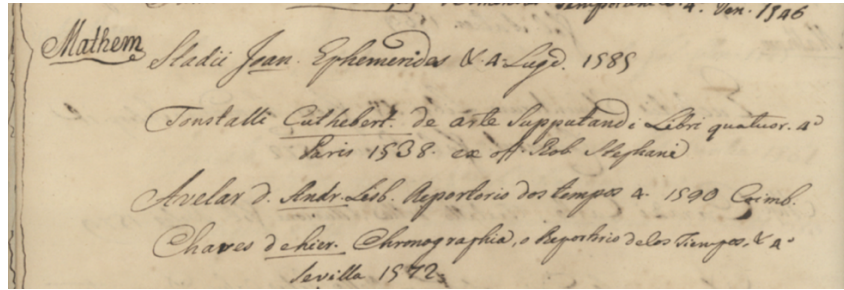 4. Ven. 1546
Mathem
Stadii Joan. Ephemerides &. 4. Lugd. 1585
Tonstalli Cuthebert. de arte Supputandi Libri quatuor. 4º
Paris 1538. ex off. Rob Stephani
Avelar d. Andr. Lisb. Reportorio dos tempos 4. 1590 Coimb.
Chaves de hier. Chronographia, o Reportrio de los Tiempos, & 4º
Sevilla 1572